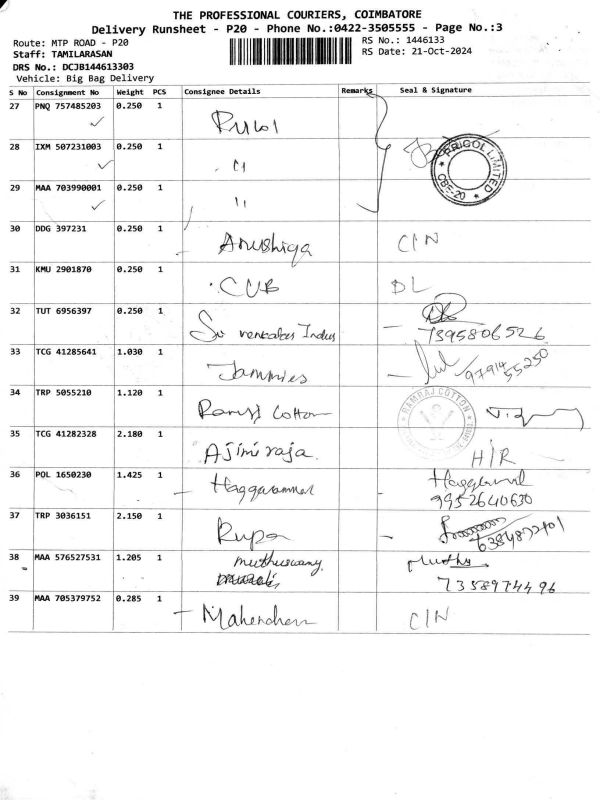 THE PROFESSIONAL COURIERS, COIMBATORE
Delivery Runsheet - P20 - Phone No.:0422-3505555 - Page No.:3
Route: MTP ROAD - P20
RS No.: 1446133
Staff: TAMILARASAN
RS Date: 21-Oct-2024
DRS No.: DCJB144613303
Vehicle: Big Bag Delivery
S No Consignment No Weight PCS Consignee Details Remarks Seal & Signature
27 PNQ 757485203 0.250 1
28 IXM 507231003 0.250 1 "
PRICOL LIMITED
CBE-20
29 MAA 703990001 0.250 1 "
30 DDG 397231 0.250 1 Anushiya CIN
31 KMU 2901870 0.250 1 CUB DL
32 TUT 6956397 0.250 1 Indus
7395806526
33 TCG 41285641 1.030 1 Jammies
97914 55250
34 TRP 5055210 1.120 1 Ramraj Cotton
RAMRAJ COTTON
35 TCG 41282328 2.180 1 H/R
36 POL 1650230 1.425 1
9952640630
37 TRP 3036151 2.150 1 Rupa
38 MAA 576527531 1.205 1 muthuswamy
Muthu
7358974496
39 MAA 705379752 0.285 1 CIN